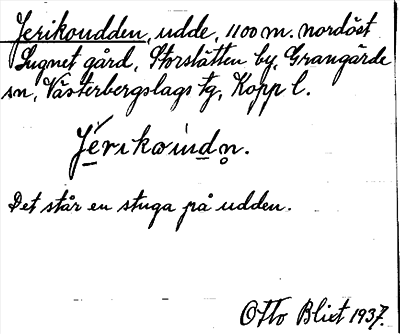 Jerikoudden, udde, 1100 m. nordöst
Lugnet gård, Storslätten by, Grangärde
sn, Västerbergslags tg, Kopp l.
Det står en stuga på udden.
Otto Blixt 1937.